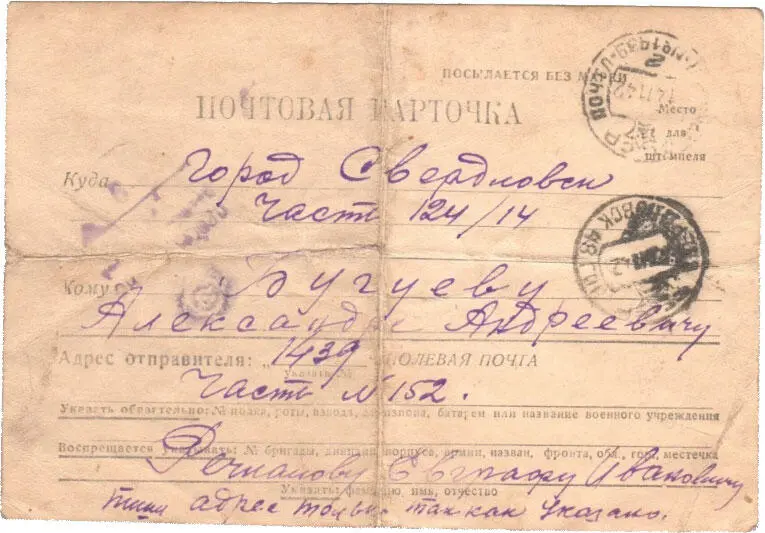 ПОСЫЛАЕТСЯ БЕЗ МАРКИ
ПОЧТОВАЯ КАРТОЧКА
Место
для
штемпеля
Куда Город Свердловск
Часть 124/14
Кому Бугуеву
Александру Андреевичу
Адрес отправителя: „1439 ПОЛЕВАЯ ПОЧТА
указать №
Часть N 152.
Указать обязательно: № полка, роты, взвода, дивизиона, батареи или название военного учреждения
Воспрещается указывать: № бригады, дивизии, корпуса, армии, назван. фронта, обл., гор., местечка
Ивановичу
Указать: фамилию, имя, отчество
адрес только так как указано.